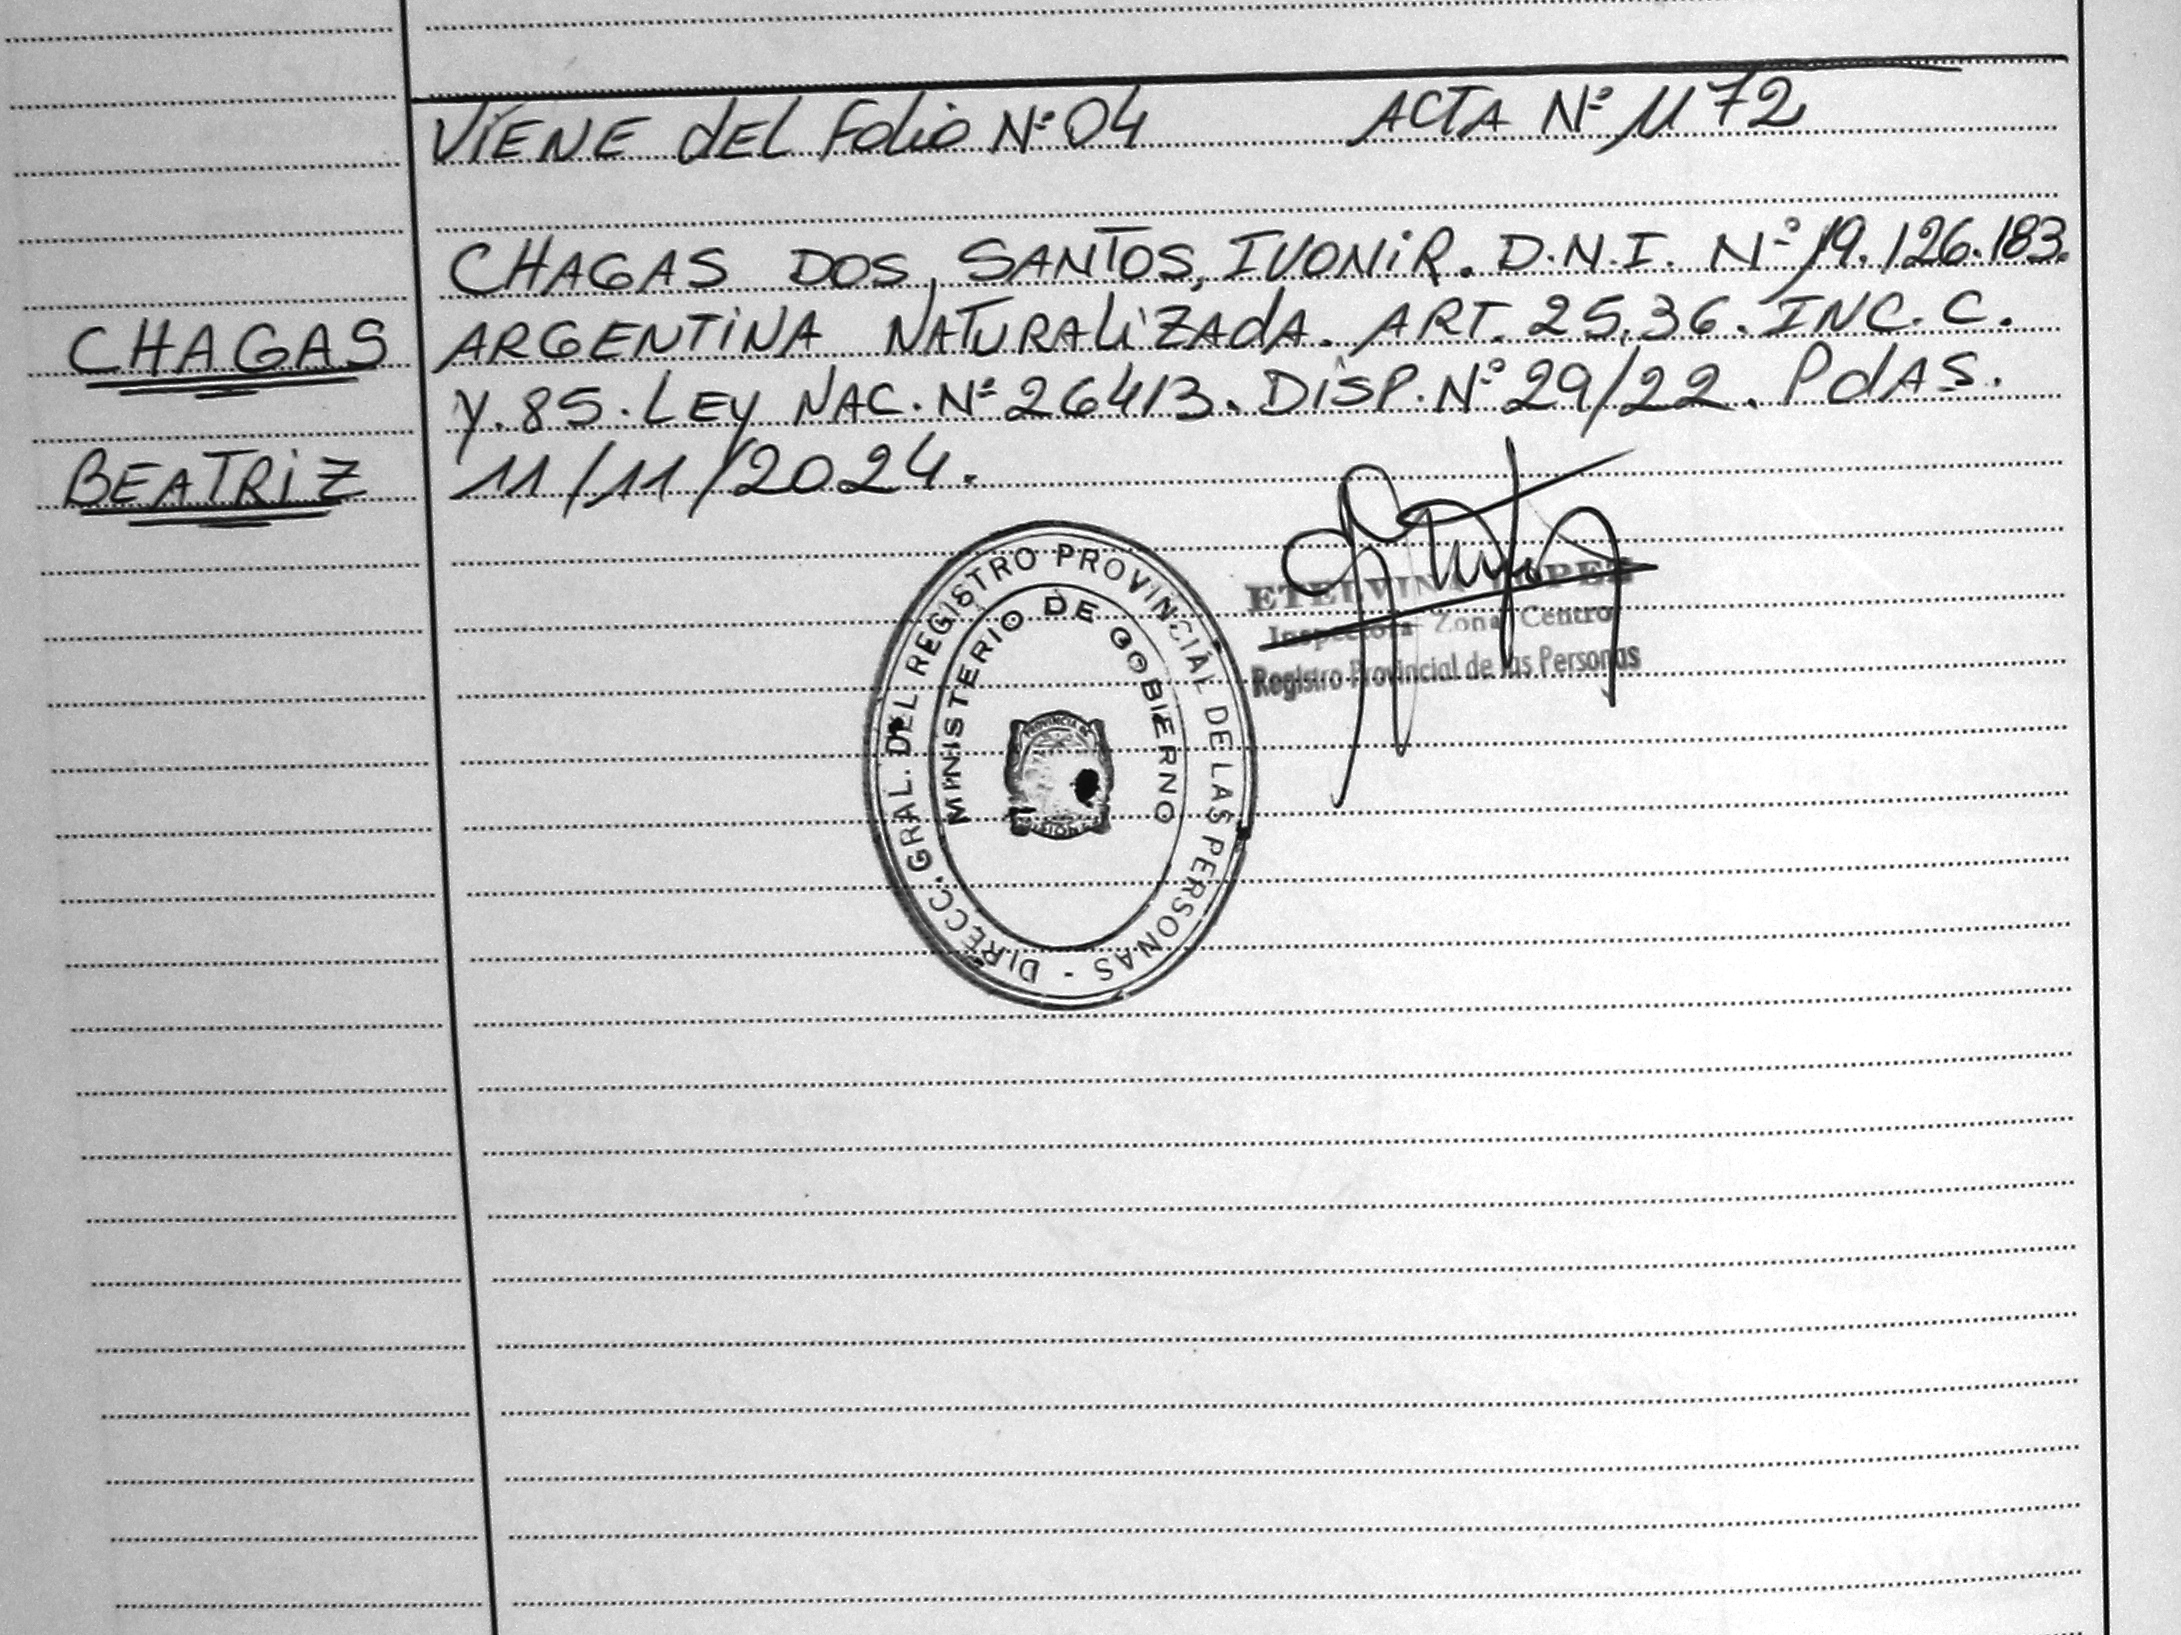 VIENE dEL Folio Nº 04 ACTA Nº 1172
CHAGAS DOS SANTOS, IVONIR. D.N.I. Nº 19.126.183.
ARGENTINA NATURALIZADA. ART. 25,36. INC. C.
Y. 85. LEY NAC. Nº 26413. DISP. Nº 29/22. PdAS.
11/11/2024.
CHAGAS
BEATRIZ
DIRECC. GRAL. DEL REGISTRO PROVINCIAL DE LAS PERSONAS -
MINISTERIO DE GOBIERNO
PROVINCIA DE
MISIONES
ETELVINA LOPEZ
Inspectora Zona Centro
Registro Provincial de las Personas